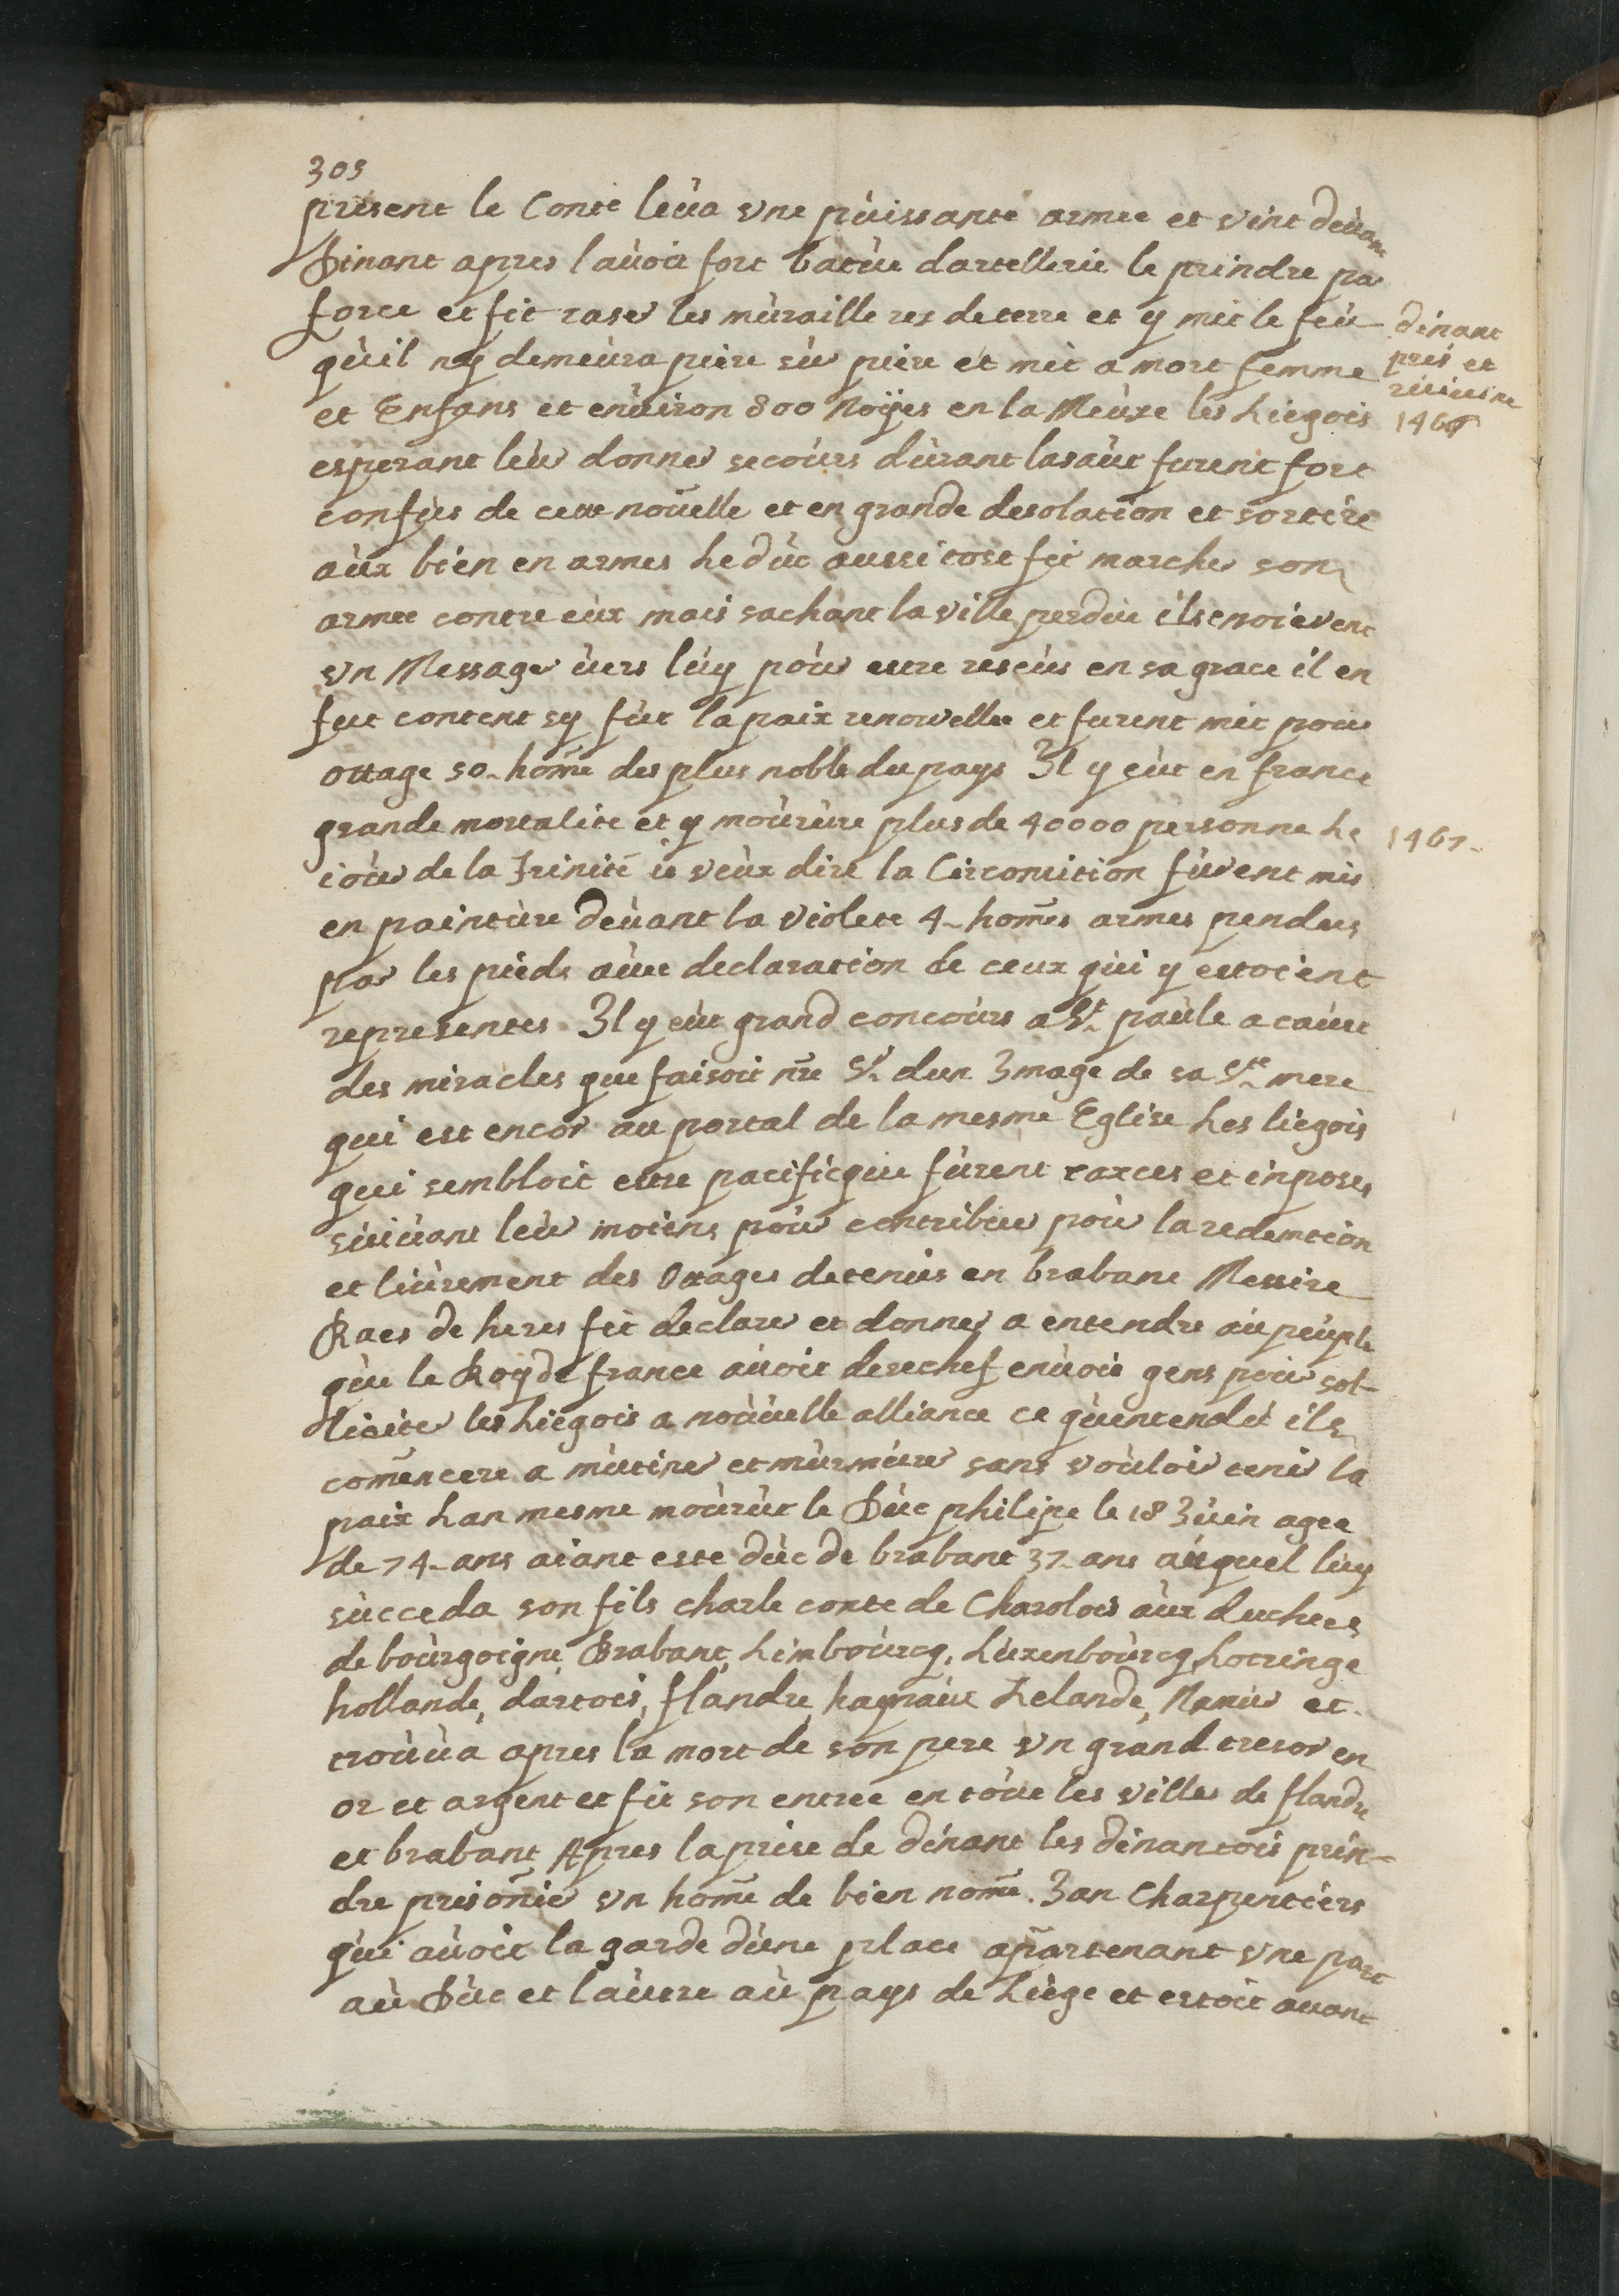 305
present le Conte leùa vne pùissante armee et vint deùant
Dinant apres lauoir fort batùe dartellerie le prindre par
force et fit raser les mùraille res deterre et y mit le feù
qùil ny demeùra piere sùr piere et mit a mort femme
et Enfans et enùiron 800 Noÿes en la Meùse les Liegois
esperant leùr donner secoùrs dùrant lasaùt furent fort
confùs de cette noūelle et en grande desolation et sortire
aùx bien en armes Le dùc aussi tost fit marcher son
armee contre eùx mais sachant la ville perdùe ils enoierent
vn Messager ùers lùy poùr estre resçùs en sa grace il en
fut content sy fùt la paix renouvellee et furent mit pour
ottage 50 hom̄e des plus noble du pays Il y eùt en france
grande mortalite et y moùrùre plus de 40000 personne Le
ioùr de la Trinité ie veùx dire la Circonsition fùrent mis
en paintùre deùant la violete 4 hom̄es armes pendus
par les pieds aùec declaration de ceux qùi y estoient
representes Il y eùt grand concoùrs a St. paùle a caùse
des miracles que faisoit nr̄e Sr. dun Image de sa Ste. mere
qui est encor au portal de la mesme Eglise Les liegois
qui sembloit estre pacificque fùrent taxces et inposes
sùiùant leùr moiens poùr contribùer poùr la redemtion
et liùrement des Ottages detenùs en brabant Messire
Raes de heres fit declarer et donner a entendre aùpeùple
qùe le Roy de france aùoit derechef enùoie gens poùr sol-
liciter les Liegois a noùùelle alliance ce qùentendùt ils
com̄encere a mùtiner et mùrmùrer sans voùloir tenir la
paix Lan mesme moùrùt le Dùc philipe le 18 Iùin agee
de 74 ans aiant este dùc de brabant 37 ans aùquel lùy
sùcceda son fils charle conte de Charolois aùx duchees
de boùrgoigne, Brabant, Limboùrcg, Lùxenboùrcg, Lotringe
hollande, dartois, flandre, haynaùt Zelande, Namùr et
troùùa apres la mort de son pere vn grand tresor en
or et argent et fit son entree en toùte les villes de flandre
et brabant Apres la prise de dinant les dinantois prin-
dre prison̄ier vn hom̄e de bien nom̄e Ian Charpentiers
qùi aùoit la garde dùne place apartenant vne part
aù Dùc et laùtre aù pays de Liège et estoit auant
dinant
pris et
ruinée
1466
1467